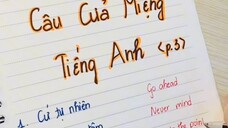 Câu Cuả Miệng
Tiếng Anh <p.3>
Go ahead
1. Cứ tự nhiên
Never mind
the point